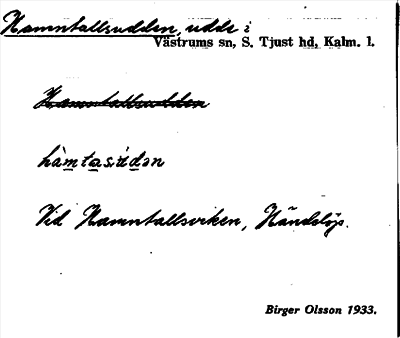 Hamntallsudden, udde i
Västrums sn, S. Tjust hd, Kalm. l.
Hamntallsudden
hàmtasúdən
Vid Hamntallsviken, Händelöp.
Birger Olsson 1933.